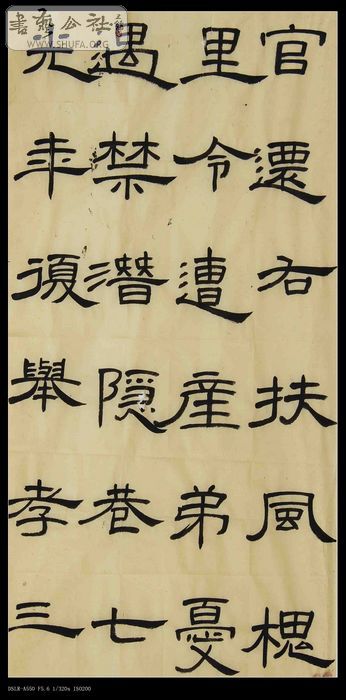 官還右扶風槐
里令遭產弟憂
遇禁潛隱巷七
年復舉孝三
書藝公社
WWW.SHUFA.ORG
DSLR-A550 F5.6 1/320s ISO200